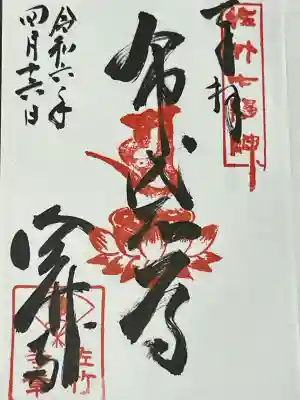 奉拝
佐竹七福神
布袋尊
令和六年
四月十六日
佐竹